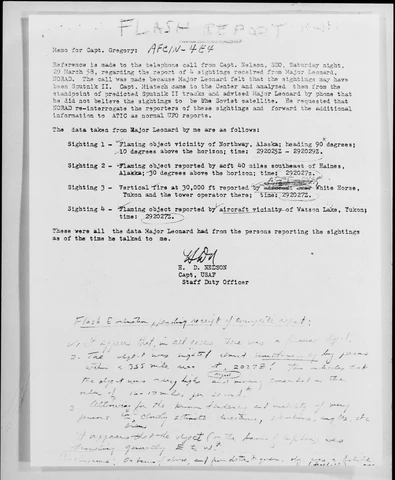 FLASH REPORT
Memo for Capt. Gregory: AFCIN-4E4
Reference is made to the telephone call from Capt. Nelson, SDO, Saturday night,
29 March 58, regarding the report of 4 sightings received from Major Leonard,
NORAD. The call was made because Major Leonard felt that the sightings may have
been Sputnik II. Capt. Miatech came to the Center and analyzed them from the
standpoint of predicted Sputnik II tracks and advised Major Leonard by phone that
he did not believe the sightings to be the Soviet satellite. He requested that
NORAD re-interrogate the reporters of these sightings and forward the additional
information to ATIC as normal UFO reports.
The data taken from Major Leonard by me are as follows:
Sighting 1 - Flaming object vicinity of Northway, Alaska; heading 90 degrees;
10 degrees above the horizon; time: 292025Z - 292029Z.
Sighting 2 - Flaming object reported by acft 40 miles southeast of Haines,
Alaska; 30 degrees above the horizon; time: 292027Z.
Sighting 3 - Vertical fire at 30,000 ft reported by White Horse,
Yukon and the tower operator there; time: 292027Z.
Sighting 4 - Flaming object reported by aircraft vicinity of Watson Lake, Yukon;
time: 292027Z.
These were all the data Major Leonard had from the persons reporting the sightings
as of the time he talked to me.
H. D. NELSON
Capt, USAF
Staff Duty Officer
Flash Evaluation, pending receipt of complete report:
1. It appears that, in all cases, there was a
2. The object was sighted almost simultaneously by persons
within a 355 mile at 2027Z! This indicates that
the object was very high and moving somewhat on the
order of 10-15 miles per second.
3. Allowing for the known and of many
persons to
It appears the object
traveling generally E to W